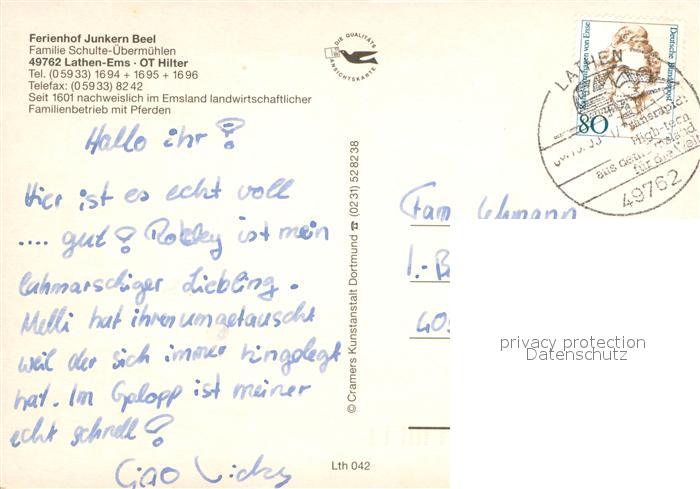 Ferienhof Junkern Beel
Familie Schulte-Übermühlen
49762 Lathen-Ems · OT Hilter
Tel. (0 59 33) 16 94 + 16 95 + 16 96
Telefax: (0 59 33) 82 42
Seit 1601 nachweislich im Emsland landwirtschaftlicher
Familienbetrieb mit Pferden
DIE QUALITÄTS
ANSICHTSKARTE
Hallo ihr!
Hier ist es echt voll
.... gut! Robby ist mein
lahmarschiger Liebling.
Melli hat ihren umgetauscht
weil der sich immer hingelegt
hat. Im Galopp ist meiner
echt schnell!
Ciao Vicky
© Cramers Kunstanstalt Dortmund ☎ (0231) 52 82 38
Lth 042
Deutsche Bundespost
80
LATHEN
Transrapid:
High-tech
aus dem Emsland
für die Welt
49762
Fam. Lehmann
privacy protection
Datenschutz